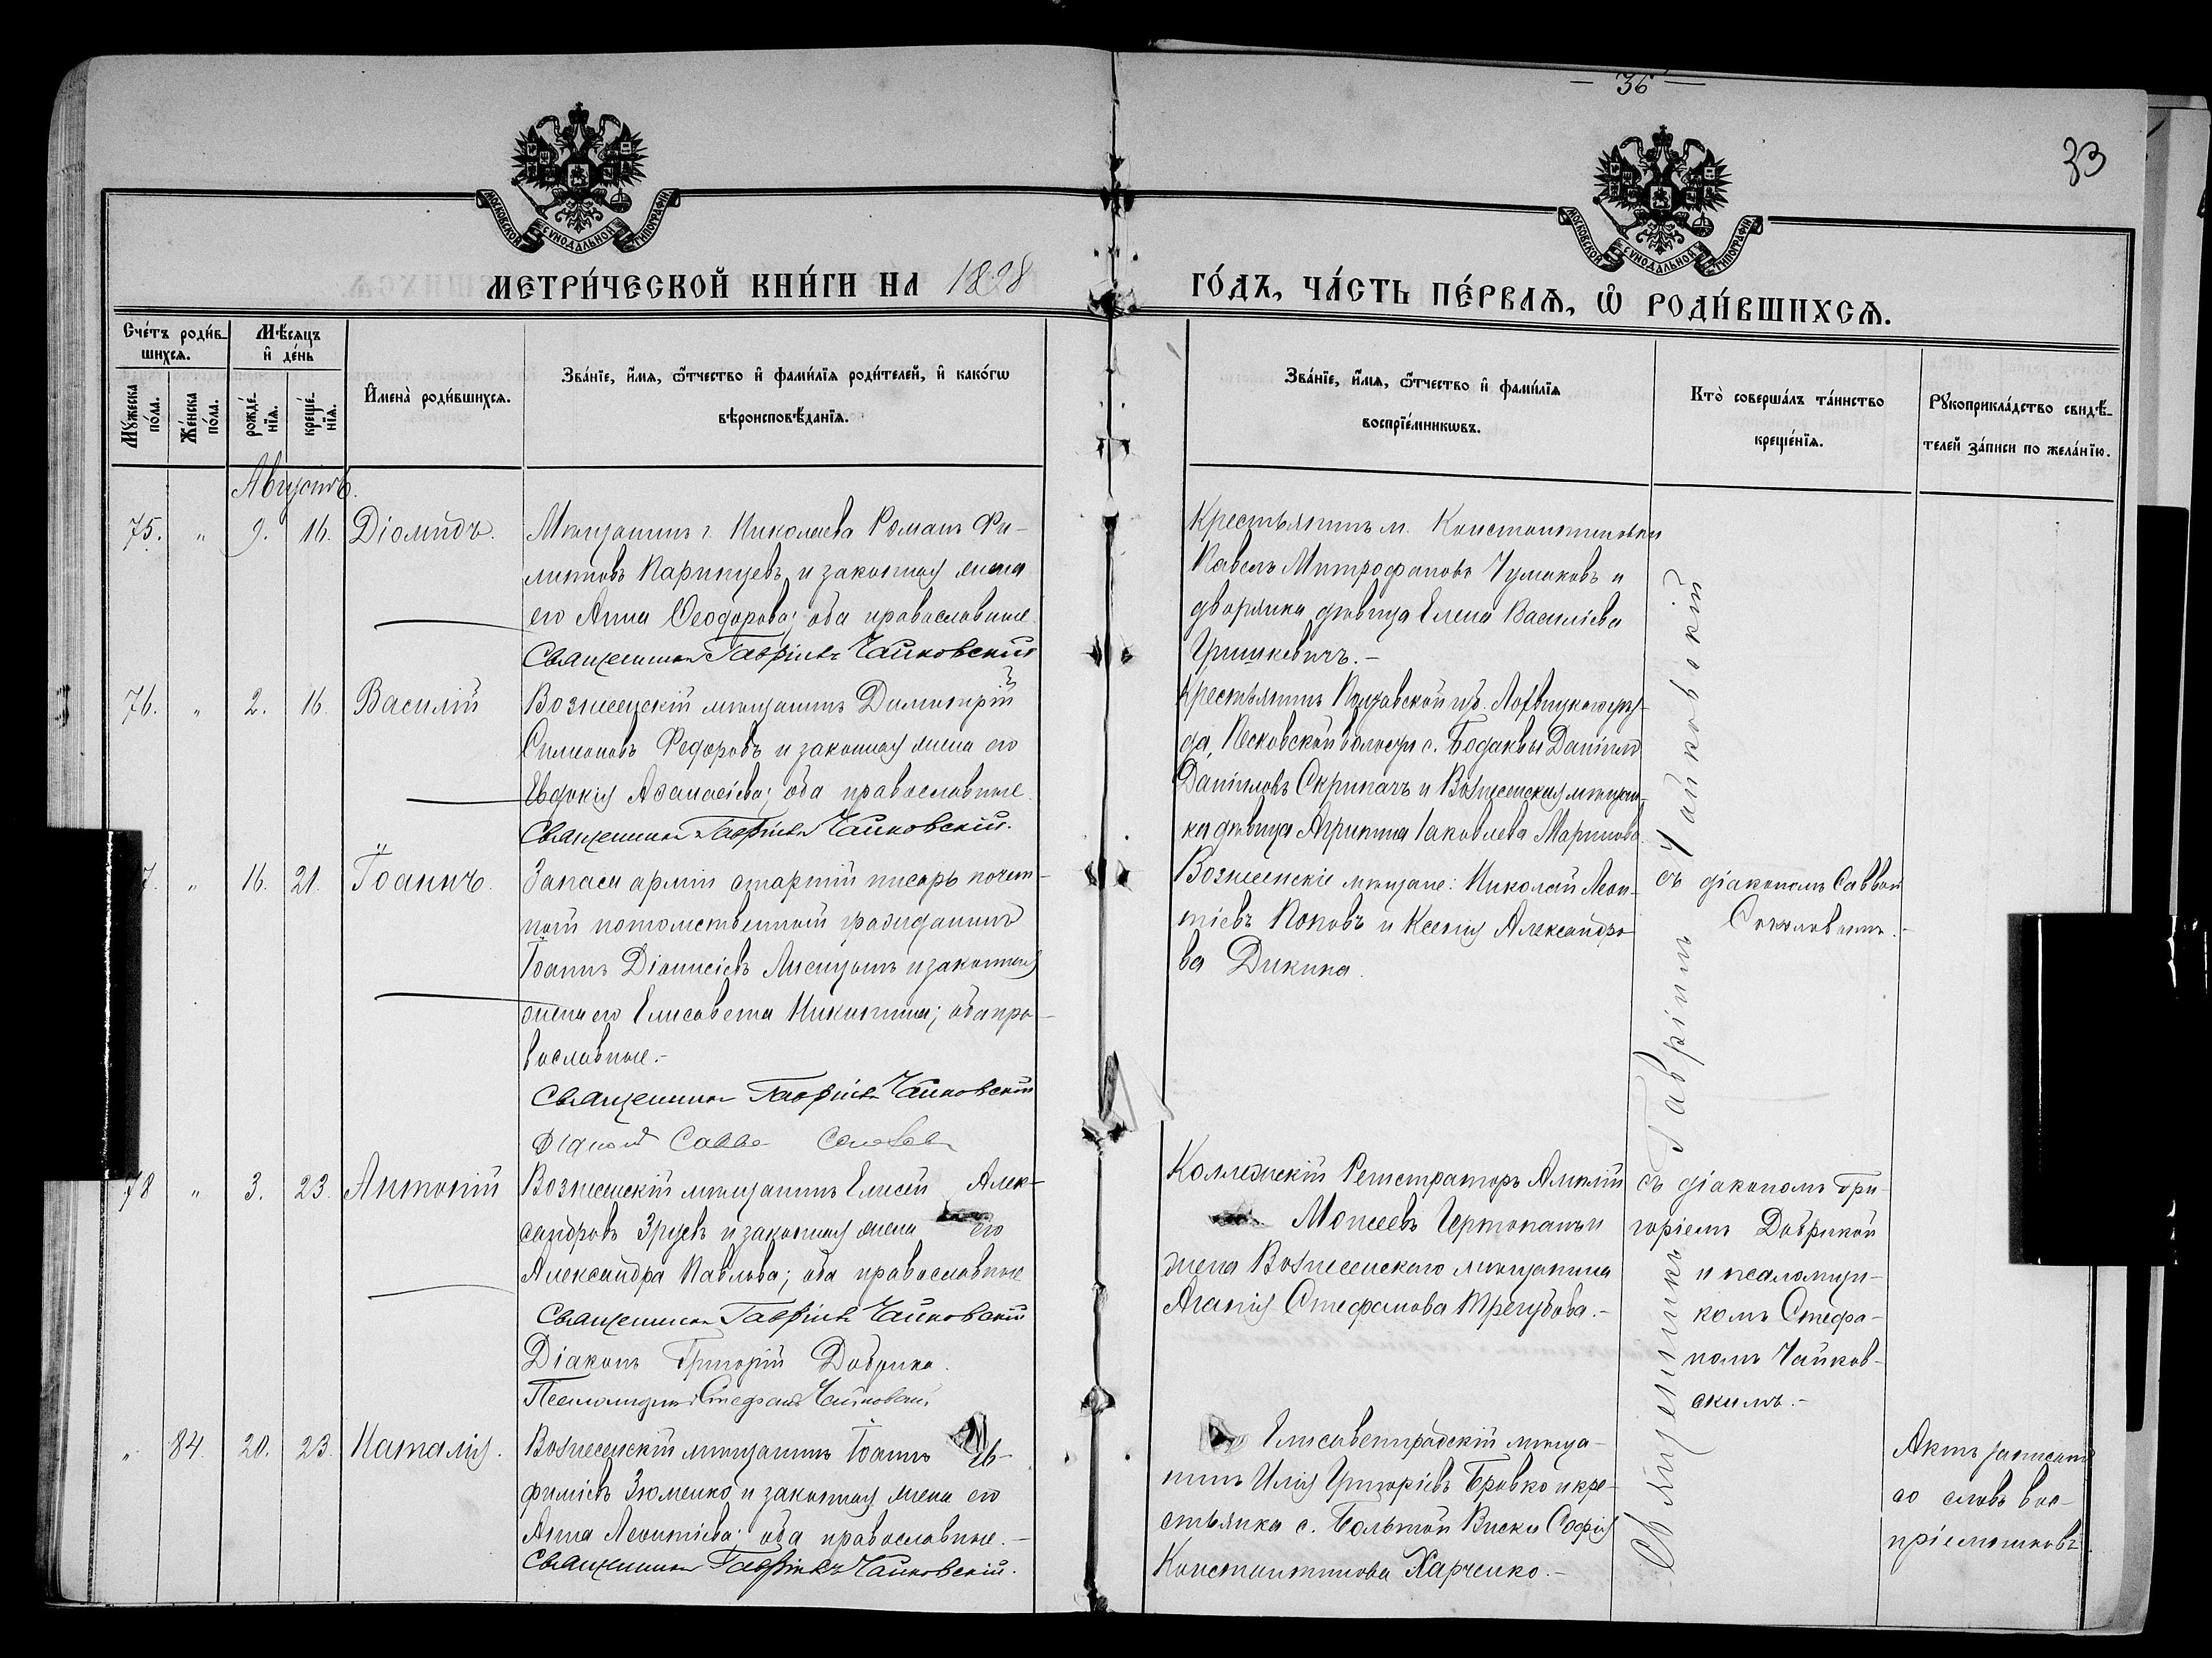 — 36 —
33
МОСКОВСКОЙ СѴНОДАЛЬНОЙ ТИПОГРАФІИ
МОСКОВСКОЙ СѴНОДАЛЬНОЙ ТИПОГРАФІИ
МЕТРИ́ЧЕСКОЙ КНИ́ГИ НА 1898
ГО́ДЪ, ЧА́СТЬ ПЕ́РВАѦ, Ѡ҆ РОДИ́ВШИХСѦ.
Сче́тъ роди́в-
шихсѧ.
Мꙋ́жеска по́ла.
Же́нска по́ла.
Мѣ́сѧцъ
и҆ де́нь
рожде́-
нїѧ.
креще́-
нїѧ.
И҆мена̀ роди́вшихсѧ.
Зва́нїе, и҆́мѧ, ѻ҆́тчество и҆ фами́лїѧ роди́телей, и҆ како́гѡ
вѣроисповѣ́данїѧ.
Зва́нїе, и҆́мѧ, ѻ҆́тчество и҆ фами́лїѧ
воспрїе́мникѡвъ.
Кто̀ соверша́лъ та́инство
креще́нїѧ.
Рꙋкоприкла́дство свидѣ́-
телей за́писи по жела́нїю.
Августъ.
75. " 9. 16. Діомидъ.
Мѣщанинъ г. Николаева Романъ Фи-
липповъ Паринцевъ и законная жена
его Анна Ѳеодорова; оба православные.
Священникъ Гавріилъ Чайковскій
Крестьянинъ м. Константиновки
Павелъ Митрофановъ Чумаковъ и
дворянка дѣвица Елена Василіева
Гришкевичъ.-
76. " 2. 16. Василій
Вознесенскій мѣщанинъ Димитрій
Симеоновъ Федоровъ и законная жена его
Евдокія Аѳанасіева; оба православные.
Священникъ Гавріилъ Чайковскій.
Крестьянинъ Полтавской губ. Лохвицкаго уѣз-
да, Песковской волости с. Бодаквы Даніилъ
Даніиловъ Скрипачъ и Вознесенская мѣщан-
ка дѣвица Агрипина Іаковлева Маринова.
7. " 16. 21. Іоаннъ.
Запаса арміи старшій писарь почет-
ный потомственный гражданинъ
Іоаннъ Діонисіевъ Лисицынъ и законная
жена его Елисавета Никитина; оба пра-
вославные.-
Священникъ Гавріилъ Чайковскій
Діаконъ Савва
Вознесенскіе мѣщане: Николай Леон-
тіевъ Поповъ и Ксенія Александро-
ва Дикина.
съ діакономъ Саввой
78 " 3. 23. Антоній
Вознесенскій мѣщанинъ Елисей Алек-
сандровъ Зруевъ и законная жена его
Александра Павлова; оба православные
Священникъ Гавріилъ Чайковскій
Діаконъ Григорій Добрико.
Псаломщикъ Стефанъ Чайковскій
Коллежскій Регистраторъ
Моисеевъ Чертопанъ и
жена Вознесенскаго мѣщанина
Агапія Стефанова Трегубова.-
съ діакономъ Гри-
горіемъ Добрикой
и псаломщи-
комъ Стефа-
номъ Чайков-
скимъ.-
" 84. 20. 23. Наталія.
Вознесенскій мѣщанинъ Іоаннъ Ев-
фиміевъ Зюменко и законная жена его
Анна Леонтіева; оба православные.-
Священникъ Гавріилъ Чайковскій.
Елисаветградскій мѣща-
нинъ Илія Григоріевъ Бровко и кре-
стьянка с. Большой Виски Софія
Константинова Харченко.-
Священникъ Гавріилъ Чайковскій
Актъ записанъ
со словъ вос-
пріемниковъ.